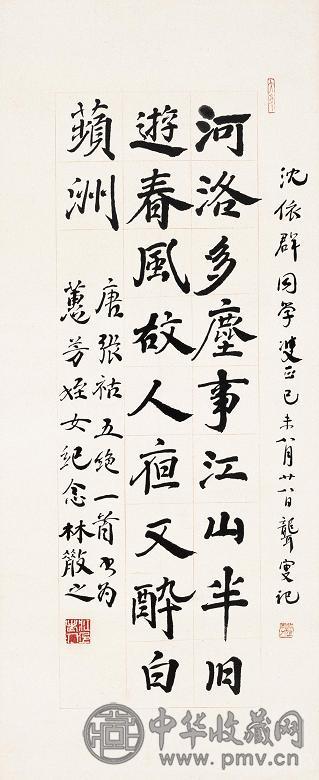 沈依群同学正己未八月廿八日聾叟记
河洛多塵事江山半旧
遊春風故人亱又醉白
蘋洲
唐張祜五絶一首书为
蕙芳姪女紀念林散之
中华收藏网
www.pmv.cn